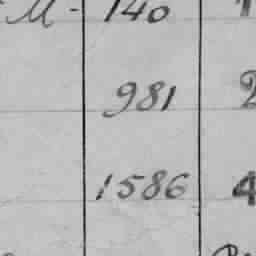 M - 140
981 2
1586 4